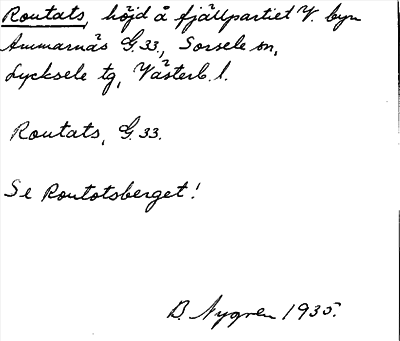 Routats, höjd å fjällpartiet V. byn
Ammarnäs G.33., Sorsele sn,
Lycksele tg, Västerb. l.
Routats, G.33.
Se Routotsberget!
B. Nygren 1935.